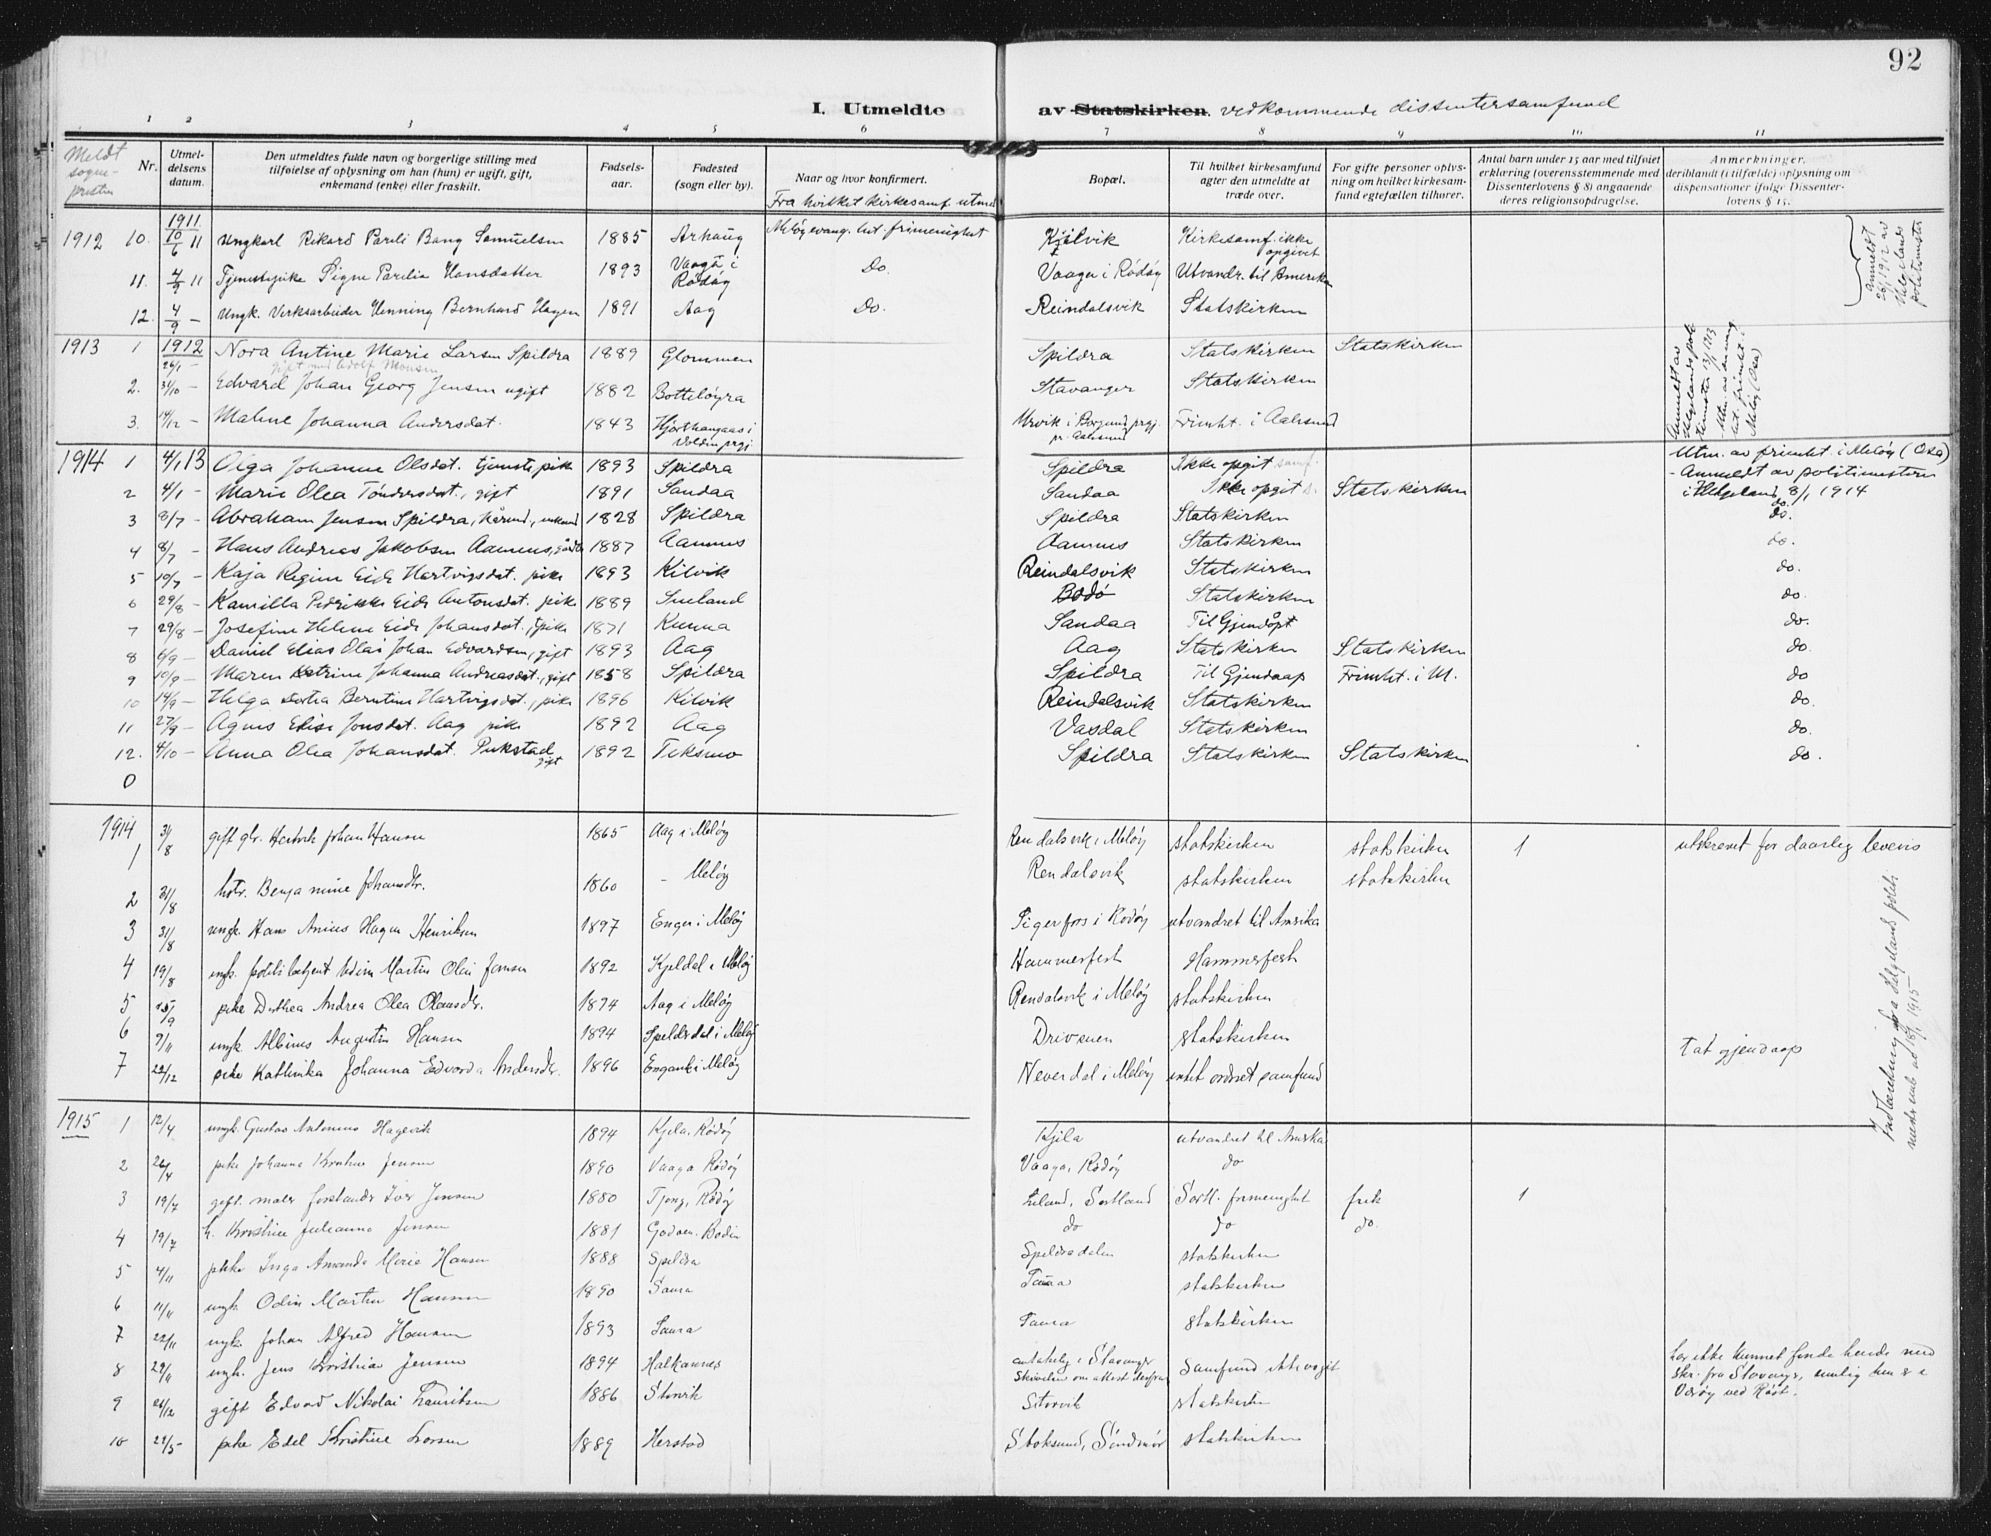 92
I. Utmeldte av Statskirken. vedkommende dissentersamfund
1 2 3 4 5 6 7 8 9 10 11
Meldt sogne-presten
Nr.
Utmeldelsens datum.
Den utmeldtes fulde navn og borgerlige stilling med tilføielse af oplysning om han (hun) er ugift, gift, enkemand (enke) eller fraskilt.
Fødsels-aar.
Fødested (sogn eller by).
Naar og hvor konfirmert.
Fra hvilket kirkesamf. utmeldt
Bopæl.
Til hvilket kirkesamfund agter den utmeldte at træde over.
For gifte personer oplysning om hvilket kirkesamfund egtefællen tilhører.
Antal barn under 15 aar med tilføiet erklæring (overensstemmende med Dissenterlovens § 8) angaaende deres religionsopdragelse.
Anmerkninger, deriblandt (i tilfælde) oplysning om dispensationer ifølge Dissenterlovens § 15.
1912 10. 1911 10/6 11 Ungkarl Rikard Pareli Bang Samuelsen 1885 Arhaug Meløy evang. lut. frimenighet Kjelvik Kirkesamf. ikke opgivet
11. 4/9 11 Tjenestepike Signe Parelia Hansdatter 1893 Vaaga i Rødøy Do. Vaaga i Rødøy Utvandr. til Amerika
12. 4/9 – Ungk. Verksarbeider Henning Bernhard Hagen 1891 Aag Do. Reindalsvik Statskirken
Anmeldt 26/1 1912 av Helgelands politimester
1913 1 1912 26/1 – Nora Antine Marie Larsen Spildra 1889 Glommen Spildra Statskirken Statskirken
gift med Adolf Monsen
2. 31/10 – Edvard Johan Georg Jensen ugift 1882 Botteløyra Stavanger Statskirken
3. 14/12 – Maline Johanna Andersdat. 1843 Hjorthaugaas i Volden prgj. Urvik i Borgund prgj. pr. Aalesund Frimht. i Aalesund
Anmeldt av Helgelands politimester 13/1 1913
1914 1 4/1 13 Olga Johanne Olsdat. tjenestepike 1893 Spildra Spildra Ikke opgit samf. Utm. av frimht i Meløy (Oxa)
2 4/1 – Marie Olea Tøndersdat., gift 1891 Sandaa Sandaa Ikke opgit Statskirken - Anmeldt av politimesteren i Helgeland 8/1 1914
3 8/7 – Abraham Jensen Spildra, kårmd., enkemd 1828 Spildra Spildra Statskirken do. do.
4 8/7 – Hans Andreas Jakobsen Aamnes, gårdbr 1887 Aamnes Aamnes Statskirken do.
5 10/7 – Kaja Regine Eide Hartvigsdat. pike 1893 Kilvik Reindalsvik Statskirken do.
6 29/8 – Kamilla Pedrikke Eide Antonsdat. pike 1889 Sneland Bodø Statskirken do.
7 29/8 – Josefine Helene Eide Johansdat., pike 1871 Kunna Sandaa Til Gjendøpt do.
8 6/9 – Daniel Elias Olai Johan Edvardsen, gift 1893 Aag Aag Statskirken Statskirken do.
9 10/9 – Maren Katrine Johanna Andreasdat., gift 1858 Spildra Spildra Til Gjendaap Frimht. i M. do
10 14/9 – Helga Dortea Berntine Hartvigsdat., pike 1896 Kilvik Reindalsvik Statskirken do.
11 27/9 – Agnes Elise Jonsdat. Aag pike 1892 Aag Vasdal Statskirken do.
12. 4/10 – Anna Olea Johansdat. Pukstad gift 1892 Teksmo Spildra Statskirken Statskirken do.
0
1914 1 3/8 gift gbr. Henrik Johan Hansen 1865 Aag i Meløy Rendalsvik i Meløy statskirken statskirken 1 utskrevet for daarlig levevis
2 31/8 hstr. Benjamine Johansdtr. 1860 – Meløy Rendalsvik statskirken statskirken
3 31/8 ungk. Hans Anius Hagen Henriksen 1897 Enger i Meløy Sigerfors i Rødøy utvandret til Amerika
4 19/8 ungk. politibetjent Edin Martin Olai Jensen 1892 Kjeldal i Meløy Hammerfest Hammerfest
5 25/9 pike Dorthea Andrea Olea Olausdtr. 1874 Aag i Meløy Rendalsvik i Meløy statskirken
6 9/11 ungk. Albinus Augustin Hansen 1894 Speldrdal i Meløy Drivuen statskirken Tat gjendaap
7 22/12 pike Kathinka Johanna Edvarda Andersdtr. 1896 Engan i Meløy Neverdal i Meløy intet ordnet samfund
Indberetning fra Helgelands politimesteremb. ad 18/1 1915
1915 1 12/4 ungk. Gustav Antonius Hagevik 1894 Kjela, Rødøy Kjila utvandret til Amerika
2 26/4 pike Johanna Jensen 1890 Vaaga Rødøy Vaaga, Rødøy do
3 19/7 gift. maler forstander Jensen 1880 Tjong, Rødøy Leland, Sortland Sortl. frimenighet frik 1
4 19/7 h. Kristine Julianne Jensen 1881 Godøen. Bodin do do do.
5 4/11 pike Inga Amanda Marie Hansen 1888 Speldra Speldradalen statskirken
6 11/11 ungk. Odin Martin Hansen 1890 Saura Saura statskirken
7 22/11 ungk. Johan Alfred Hansen 1893 Saura Saura statskirken
8 29/11 ungk. Jens Kristian Jensen 1894 Halkannes antakelig i Stavanger Skrivelse om attest derfra samfund ikke opgit har ikke kunnet finde hende med skr. fra Stavanger, Værøy ved Røst.
9 26/12 gift Edvard Nikolai Lauritsen 1886 Storvik Storvik statskirken
10 29/5 pike Edel Kristine Larsen 1889 Herstad Stoksund, Søndmør statskirken